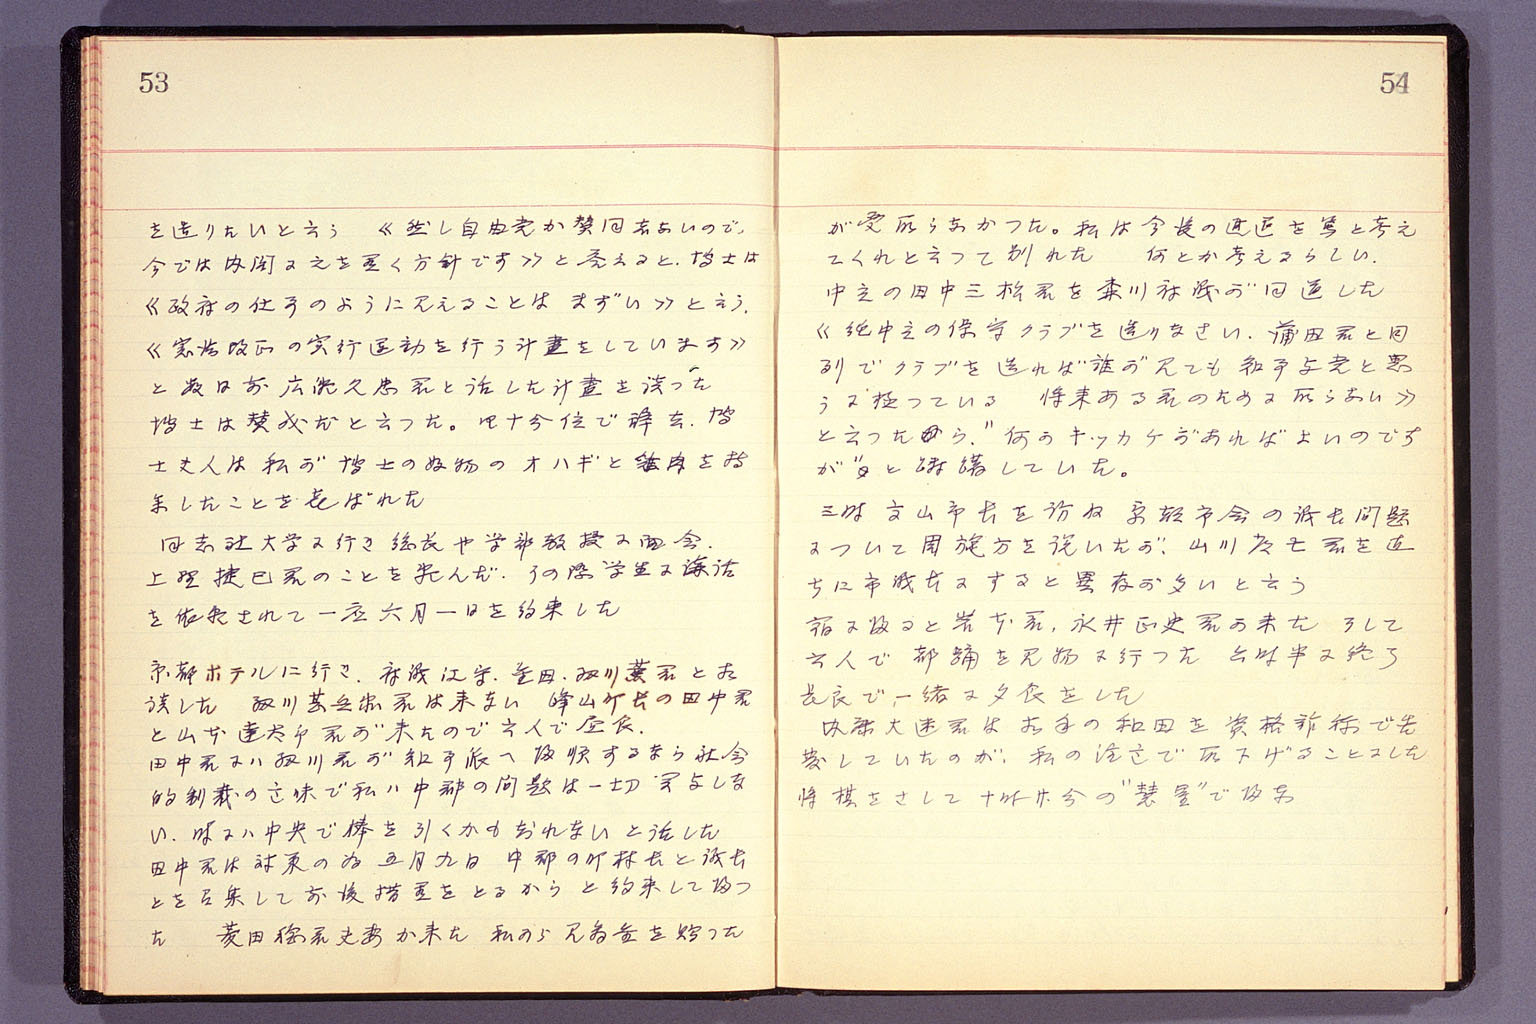 53
を造りたいと云う 《然し自由党が賛同
今では内閣に之を置く方針です》と答えると、博士は
《政府の仕事のように見えることは まずい》と云う。
《憲法改正の実行運動を行う計畫をしています》
と数日前 広瀬久忠君と話した計畫を談った
博士は賛成だと云つた。四十分位で辞去、博
士夫人は私が博士の好物のオハギと鶏肉を持
参したことを喜ばれた
同志社大学に行き総長や学部教授に面会、
上野捷巳君のことを頼んだ。その際学生に講話
を依頼されて一応六月一日を約束した
京都ホテルに行き、府議 と相
談した 君は来ない 峰山町長の田中君
と山本 君が来たので六人で昼食。
田中君にハ 川君が和手派へ復帰するなら社会
的制裁の意味で私ハ中郡の問題は一切 関与しな
い、時にハ中央で棒を引くかも知れない と話した
田中君は対策の為 五月九日 中郡の町村長と議長
とを召集して前後措置をとるから と約束して帰つ
た 菱田 君夫妻が来た 私から 見舞金を贈つた
54
が受取らなかつた。私は今後の進退を篤と考え
てくれと云つて別れた 何とか考えるらしい。
中立の田中三松君を 川府議が同道した
《純中立の保守クラブを造りなさい。蒲田君と同
列でクラブを造れば誰が見ても和手与党と思
うに極つている 将来ある君のために取らない》
と云つたから、"何かキッカケがあればよいのです
が"と躊躇していた。
三時 高山市長を訪ね 京都市会の議長問題
について周旋方を説いたが、山川 君を直
ちに市議長にすると異存が多いと云う
宿に帰ると岩本君、永井正史君が来た そして
六人で都踊を見物に行つた 六時半に終り
長良で一緒に夕食をした
内 大迷君は相手の和田を資格詐称で告
発していたのが、私の注意で取下げることにした
将棋をさして 十時 分の"彗星"で帰京